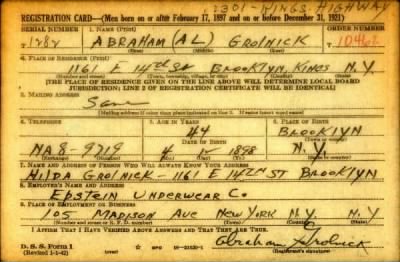 2301-KINGS HIGHWAY
REGISTRATION CARD—(Men born on or after February 17, 1897 and on or before December 31, 1921)
SERIAL NUMBER 1. NAME (Print) ORDER NUMBER
1282 ABRAHAM (AL) GROLNICK 10462
4. PLACE OF RESIDENCE (Print)
1161 E 14th St BROOKLYN, KINGS N.Y.
(Number and street) (Town, township, village, or city) (County) (State)
[THE PLACE OF RESIDENCE GIVEN ON THE LINE ABOVE WILL DETERMINE LOCAL BOARD
JURISDICTION; LINE 2 OF REGISTRATION CERTIFICATE WILL BE IDENTICAL]
3. MAILING ADDRESS
Same
[Mailing address if other than place indicated on line 2. If same insert word same]
4. TELEPHONE 5. AGE IN YEARS 6. PLACE OF BIRTH
44 BROOKLYN
DATE OF BIRTH
NA 8-9719 4 1898 N.Y.
7. NAME AND ADDRESS OF PERSON WHO WILL ALWAYS KNOW YOUR ADDRESS
HILDA GROLNICK—1161 E 14TH ST BROOKLYN
8. EMPLOYER'S NAME AND ADDRESS
EPSTEIN UNDERWEAR Co
9. PLACE OF EMPLOYMENT OR BUSINESS
105 MADISON AVE NEW YORK N.Y.
(Number and street or R. F. D. number) (Town) (County) (State)
I AFFIRM THAT I HAVE VERIFIED ABOVE ANSWERS AND THAT THEY ARE TRUE.
D. S. S. Form 1
(Revised 1-1-42) (over) GPO 16—21630-1 Abraham Grolnick